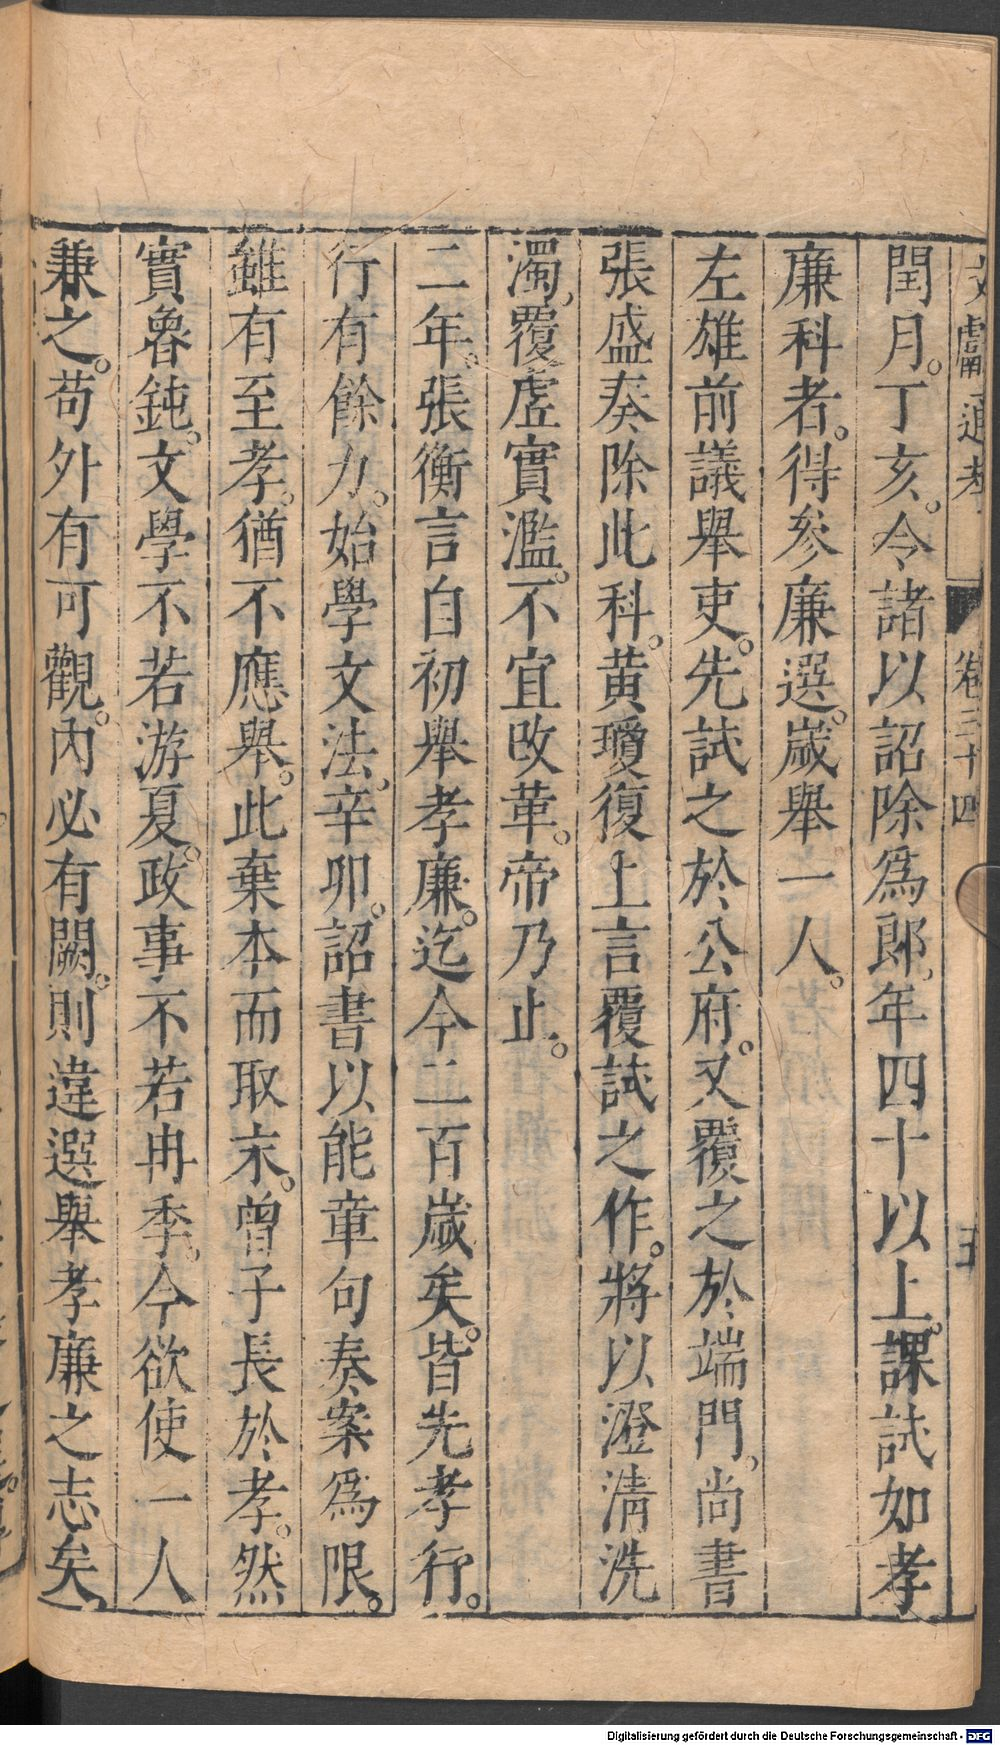 文獻通考 卷三十四 五
閏月。丁亥。令諸以詔除爲郎。年四十以上。課試如孝
廉科者。得參廉選。歲舉一人。
左雄前議舉吏。先試之於公府。又覆之於端門。尚書
張盛奏除此科。黃瓊復上言覆試之作。將以澄清洗
濁。覆虛實濫。不宜改革。帝乃止。
二年。張衡言自初舉孝廉。迄今二百歲矣。皆先孝行。
行有餘力。始學文法。辛卯。詔書以能章句奏案爲限。
雖有至孝。猶不應舉。此棄本而取末。曾子長於孝。然
實魯鈍。文學不若游夏。政事不若冉季。今欲使一人
兼之。苟外有可觀。內必有闕。則違選舉孝廉之志矣。
Digitalisierung gefördert durch die Deutsche Forschungsgemeinschaft - DFG